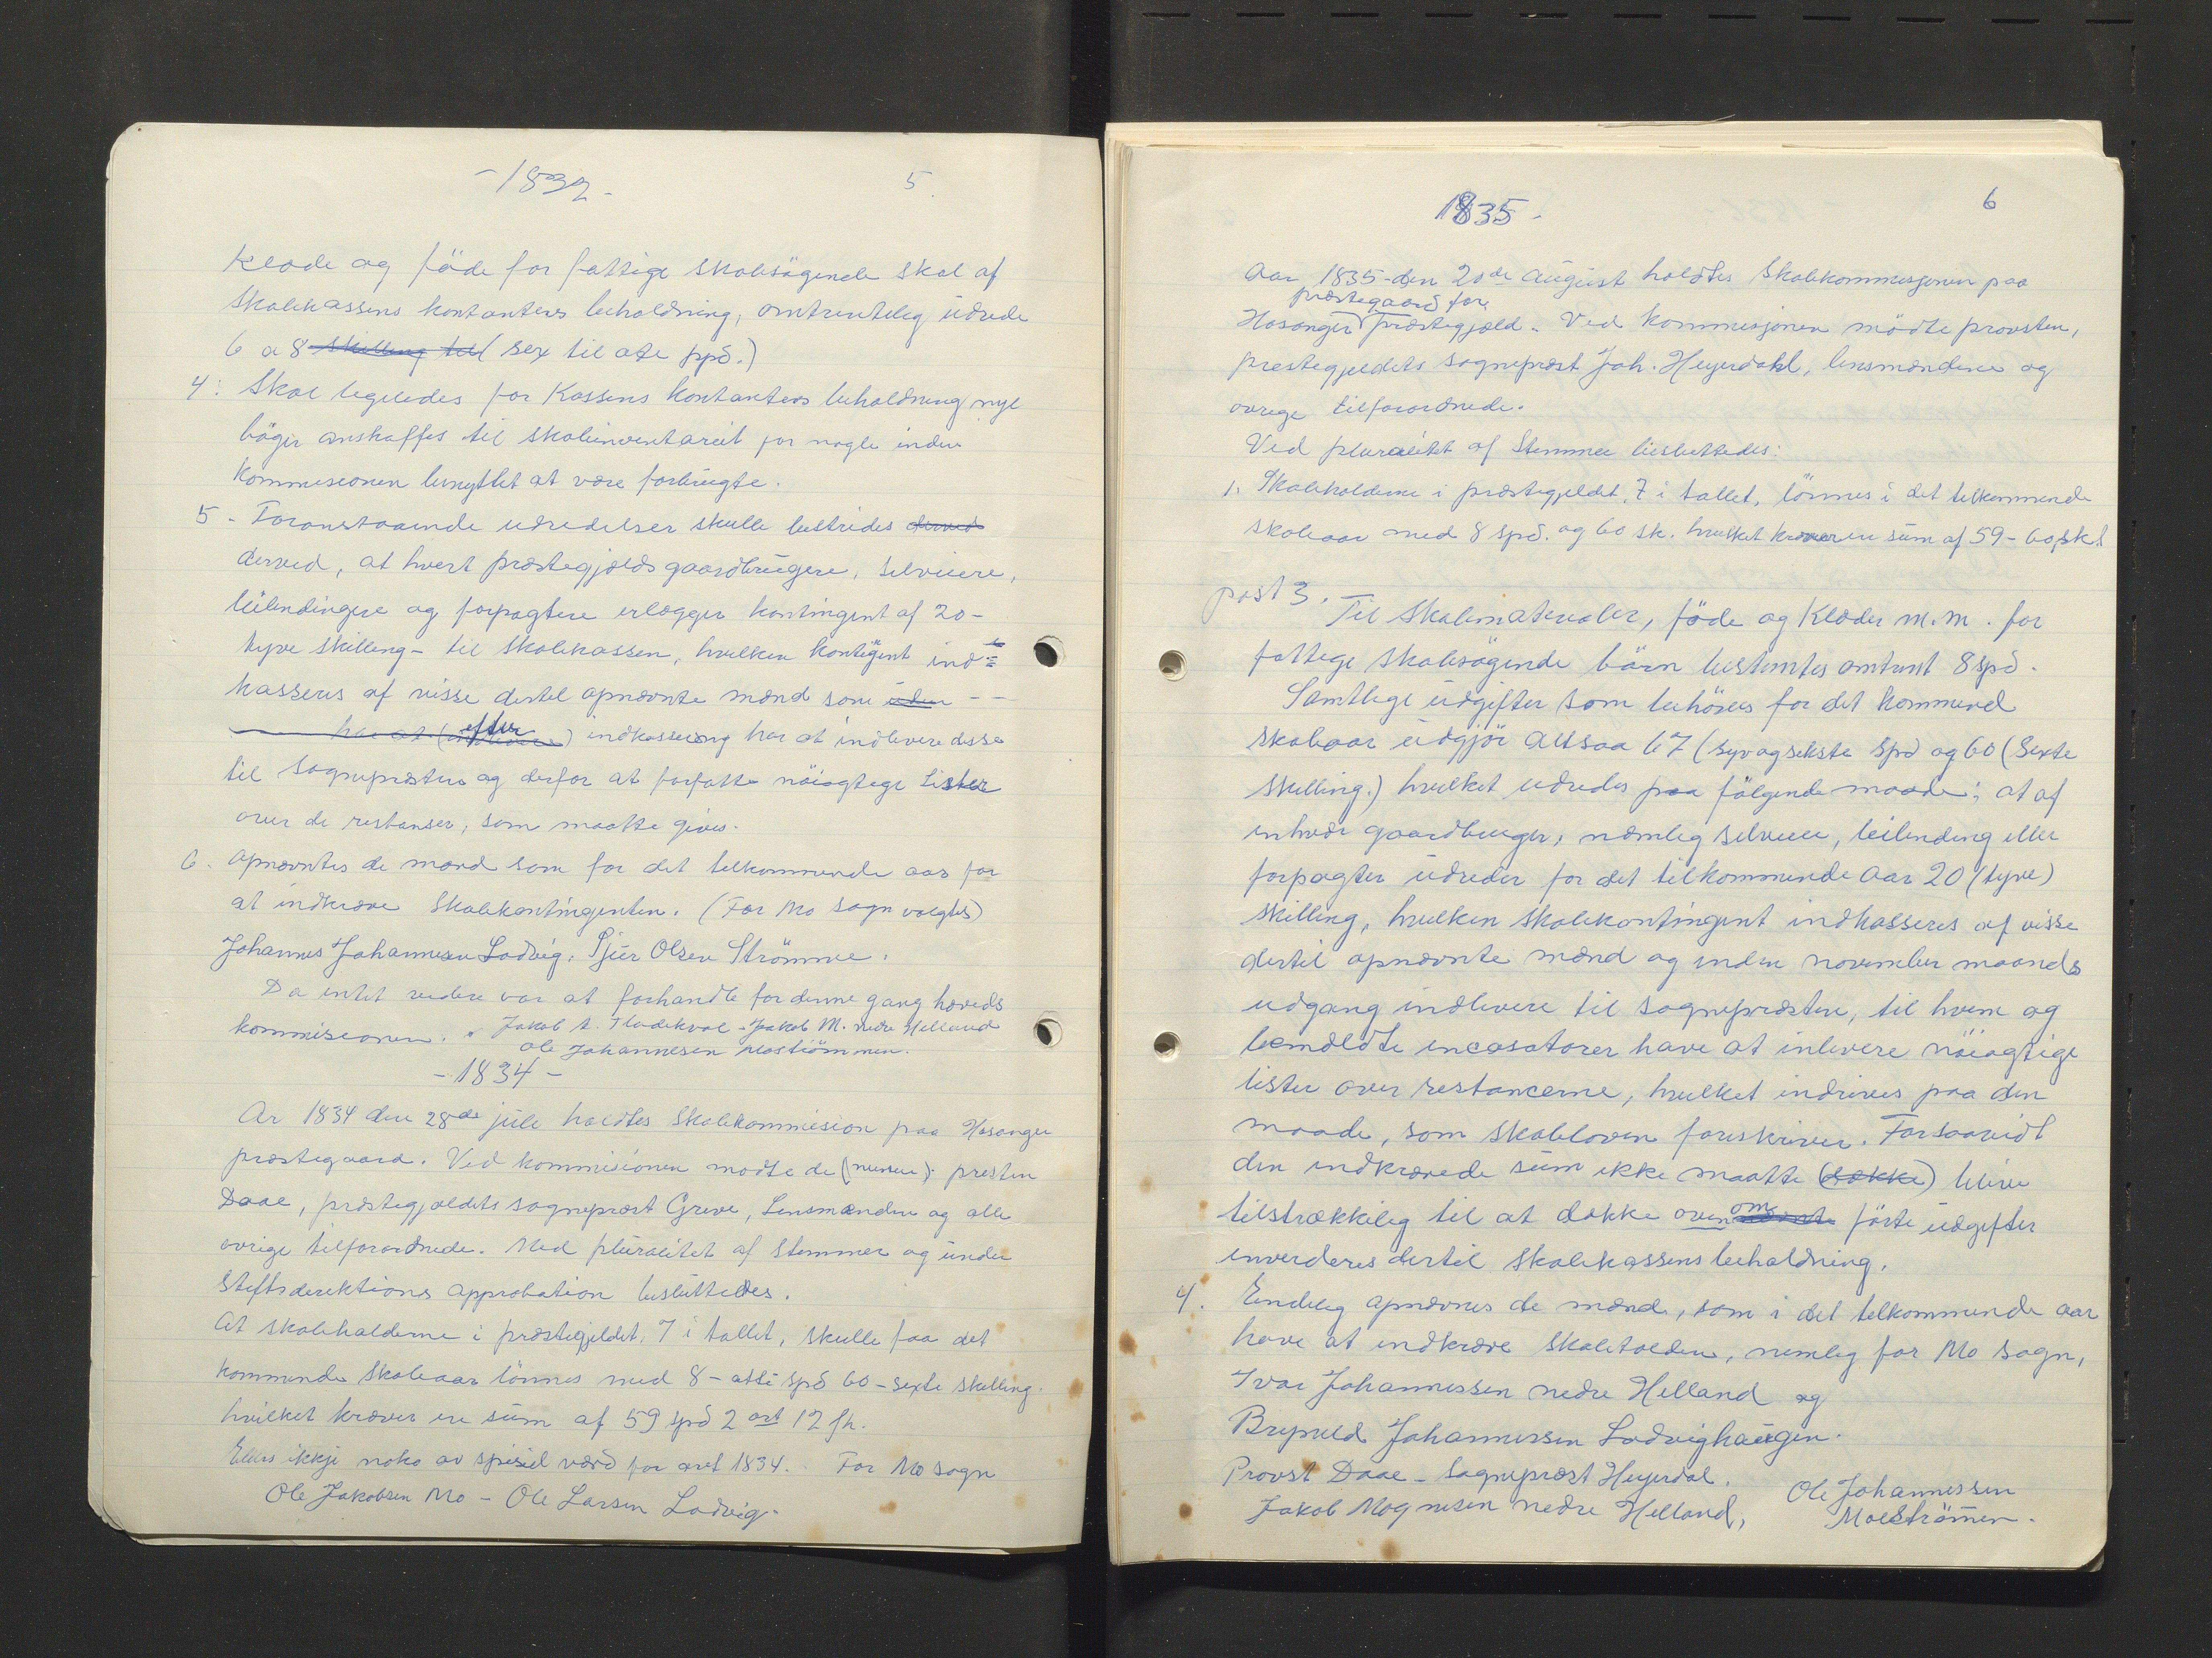 - 1832 -
5.
Klæde og föde for fattige skolesögende skal af
skolekassens kontanters beholdning, omtrentelig udrede
6 a 8 skilling til ( sex til ote spd.)
4: Skal legeledes for Kassens kontanters beholdning nye
böger anskaffes til skoleinventariet for nogle inden
kommisionen benyttet at være forbrugte.
5. Foranstaaende udredelser skulle bestrides derved
derved, at hvert præstegjælds gaardbrugere, selveiere,
leilendingere og forpagtere erlægger kontingent af 20-
tyve skilling - til skolekassen, hvilken kontigent ind =
kasseres af visse dertil opnævnte mænd som uden - -
har at ( efter ) indkassering har at indlevere disse
til sognepræsten og derfor at forfatte nöiagtige Lister
over de restanser, som maatte gives.
6. Opnævntes de mænd som for det tilkommende aar for
at indkræve Skolekontingenten. (For Mo sogn valgtes)
Johannes Johannesen Lodvig, Pjer Olsen Strömme.
Da intet videre var at forhandle for denne gang hæveds
kommisionen. Jakob A. Fladekval - Jakob M. nedre Helland
Ole Johannesen Moströmmen.
- 1834 -
Ar 1834 den 28de jule holdtes Skolekommision paa Hosanger
præstegaard. Ved kommisionen mødte de presten
Daae, præstegjældets sognepræst Greve, Lensmændene og alle
øvrige tilforordnede. Med pluralitet af stemmer og under
Stiftsdirektions approbation besluttedes.
At skoleholderne i præstegjeldet, 7 i tallet, skulle faa det
kommende skoleaar lönnes med 8 - otte spd 60 - sexti skilling.
hvilket kræver en sum af 59 spd 2 ort 12 sk.
Ellers ikkje noko av spesiel værd for aret 1834. For Mo sogn
Ole Jakobsen Mo - Ole Larsen Lodvig.
1835.
6
Aar 1835 - den 20de august holdtes Skolekommisjonen paa
præstegaard for
Hosanger præstegjæld. Ved kommisjonen mödte provsten,
prestegjeldets sognepræst Joh. Heyerdahl, lensmændene og
øvrige tilforordnede.
Ved pluralitet af Stemmer besluttedes:
1. Skoleholderne i præstegjeldet, 7 i tallet, lönnes i det tilkommende
skoleaar med 8 spd. og 60 sk. hvilket kræver en sum af 59 - 60 sk.
post 3.
Til Skolematerialer, föde og Klæder m.m. for
fattige skolesögende börn bestemtes omtrent 8 spd.
Samtlige udgifter som behöves for det kommend
skoleaar udgjör altsaa 67 (syv og sekste spd og 60 (Sexte
skilling.) hvilket udredes paa fölgende maade; at af
enhver gaardbruger, nemlig selveier, leilending eller
forpagter udreder for det tilkommende Aar 20 (tyve)
skilling, hvilken skolekontingent indkasseres af visse
dertil opnævnte mænd og inden november maaneds
udgang indlevere til sognepræsten, til hvem og
bemældte incasatorer have at inlevere nöiagtige
lister over restancerne, hvilket indrives paa den
maade, som skoleloven foreskriver. Forsaavidt
den indkrævede sum ikke maatte (række) blive
tilstrækkelig til at dække ovenom nævnte förte udgifter
inverderes dertil skolekassens beholdning.
4. Eindelig opnævnes de mænd, som i det tilkommende aar
have at indkræve Skoletolden, nemlig for Mo sogn,
Ivar Johannessen nedre Helland og
Brynild Johannessen Lodvighaugen.
Provst Daae - Sognepræst Heyerdal. Ole Johannessen
Jakob Mognesen nedre Helland, Moeströmen.